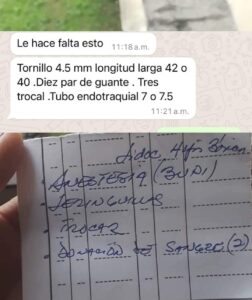 Le hace falta esto
11:18 a.m.
Tornillo 4.5 mm longitud larga 42 o
40 .Diez par de guante . Tres
trocal .Tubo endotraquial 7 o 7.5
11:21 a.m.
Anestesia (Bupi)
- Jeringuillas
- Trocar
- Donación de sangre (2)